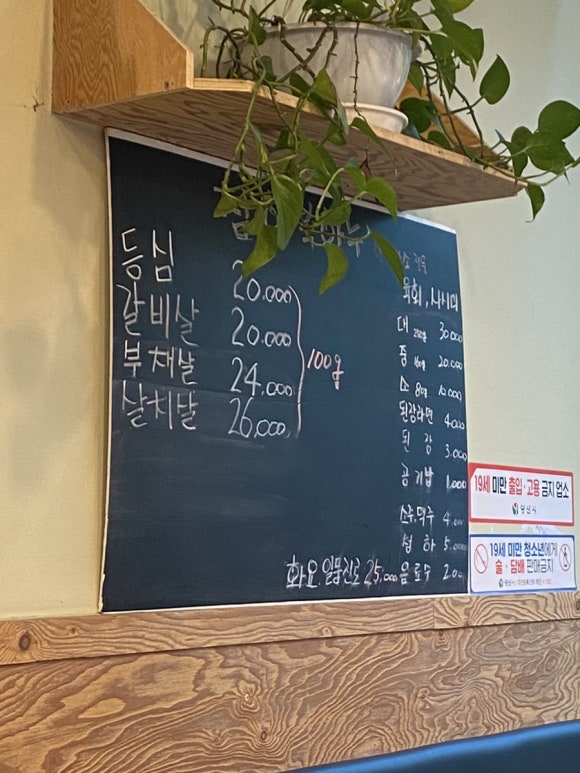 등심 20.000
갈비살 20.000
부채살 24.000
살치살 26.000
100g
육회, 사시미
대 30.000
중 20.000
소 80g 10.000
된장라면 4.000
된장 3.000
공기밥 1.000
소주,맥주
청하 5.000
화요.일품진로 25.000
음료수
19세 미만 출입·고용 금지 업소
19세 미만 청소년에게
술·담배 판매금지